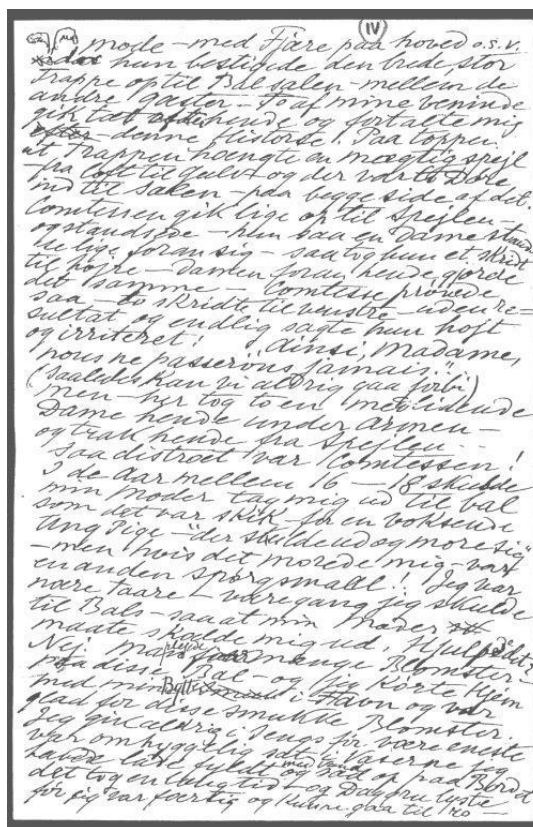 IV
mode – med Fjære paa hoved o.s.v.
hun bestigede den brede, stor
Trappe op til Bal salen – mellem de
andre Gæster – To af mine veninde
gik tæt hende og fortalte mig
– denne Historie! Paa toppen
at Trappen hængte en mægtig spejl
fra loft til Gulv og der var to Døre
ind til salen – paa begge side af det.
Comtessen gik lige op til Spejlen –
og standsede – hun saa en Dame
lige foran sig – saa tog hun et skridt
til højre – Damen foran hende gjorde
det samme – Comtesse prøvede
saa – to skridt til venstre – uden re=
sultat og endlig sagte hun højt
og irriteret! "ainsi, Madame,
nous ne passerons jamais."
(Saaledes kan vi aldrig gaa forbi)
men – her tog to en medlidende
Dame hende under armen –
og trak hende fra Spejlen –
saa distræt var Comtessen!
I de Aar mellem 16 – 18 skulde
min Moder tag mig ud til bal
som det var skik for en voksende
ung Pige – "der skulde ud og more sig"
– men hvis det morede mig, var
en anden spørgsmaal! Jeg var
nære taare – være gang jeg skulde
til Bals – saa at min Moder
maate skælde mig ud.
Nej mange Blomster
disse Bal – og jeg körte Hjem
med i Favn og var
glad for disse smukke Blomster.
Jeg gik aldrig i Sengs för være eneste
var omhyggelig sat i Vaserne jeg
havde og sad op paa Bord
det tog en lang tid – og Dagen lyste
för jeg var færtig og kunne gaa til ro –